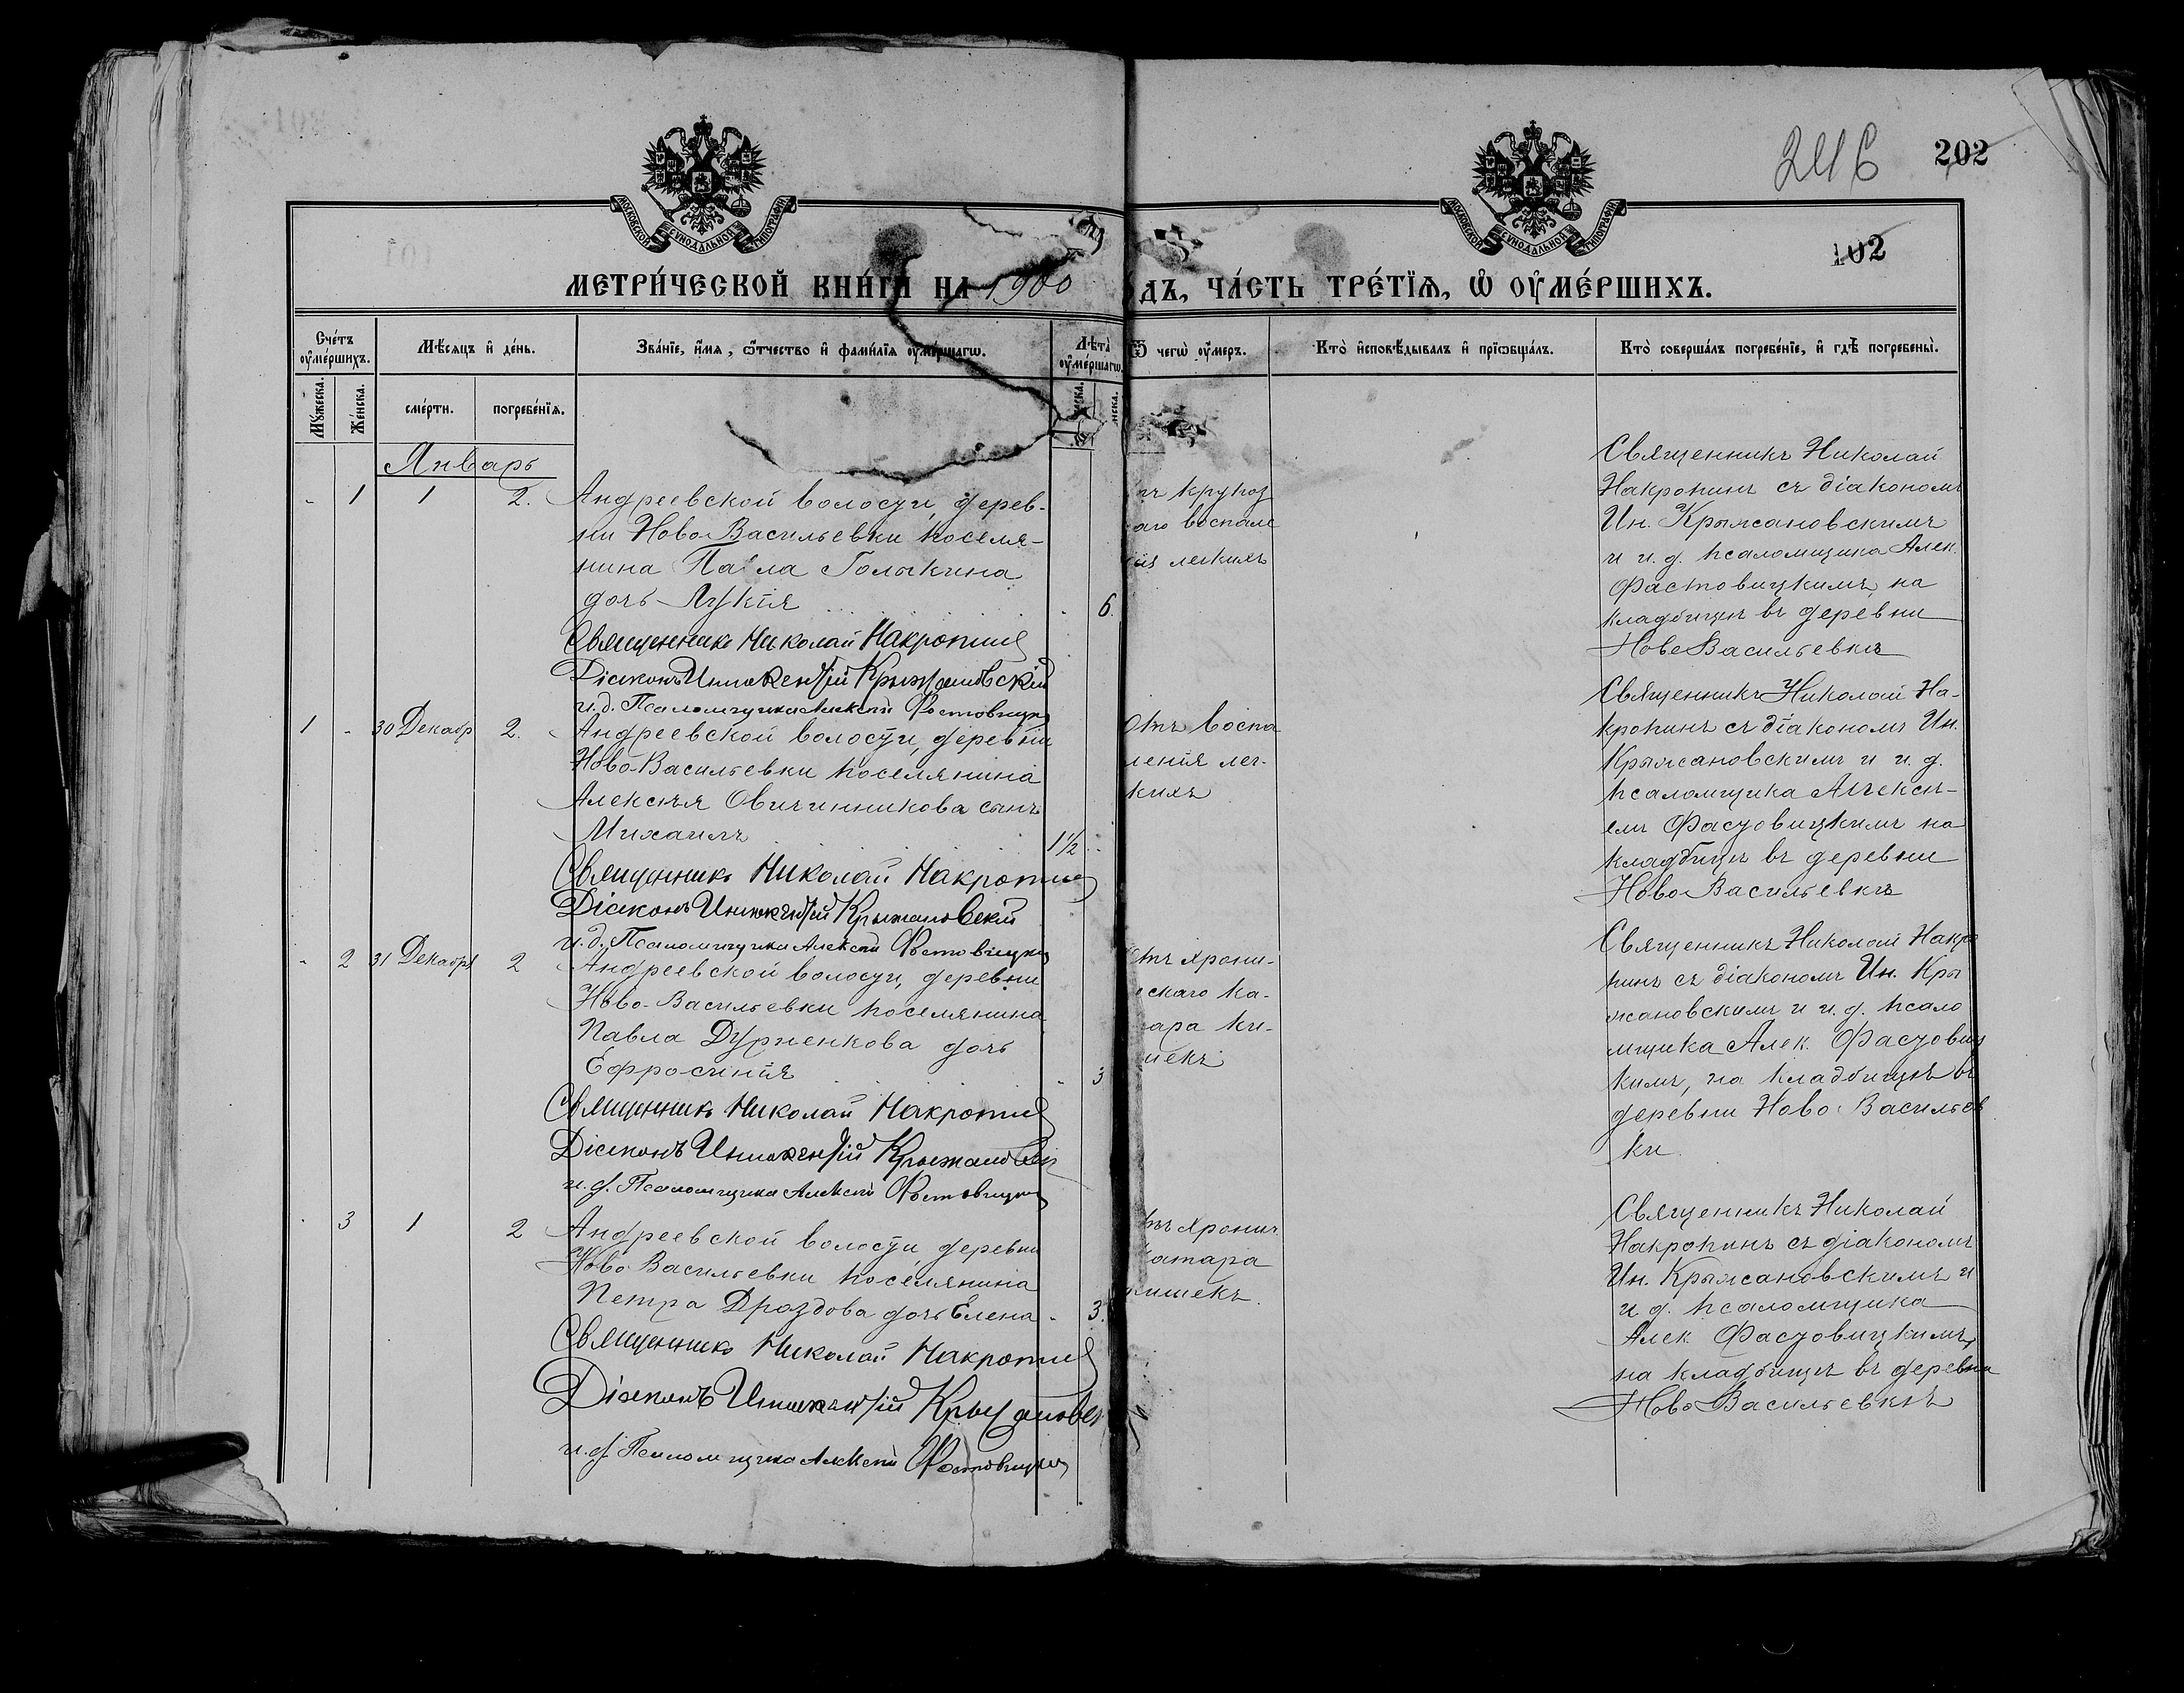 246
202
102
МОСКОВСКОЙ СѴНОДАЛЬНОЙ ТИПОГРАФІИ
МОСКОВСКОЙ СѴНОДАЛЬНОЙ ТИПОГРАФІИ
МЕТРИ́ЧЕСКОЙ КНИ́ГИ НА 1900
ДЪ, ЧА́СТЬ ТРЕ́ТЇѦ, Ѡ҆ ОУ҆МЕ́РШИХЪ.
Сче́тъ оу҆ме́ршихъ.
Мѣ́сѧцъ и҆ де́нь.
Зва́нїе, и҆́мѧ, ѻ҆́тчество и҆ фами́лїѧ оу҆ме́ршагѡ.
Лѣта̀ оу҆ме́ршагѡ.
Ѿ чегѡ̀ оу҆́меръ.
Кто̀ и҆сповѣ́дывалъ и҆ прїѡбща́лъ.
Кто̀ соверша́лъ погребе́нїе, и҆ гдѣ̀ погребены̀.
Мꙋ́жеска.
Же́нска.
сме́рти.
погребе́нїѧ.
Январь
- 1 1 2.
Андреевской волости, дерев-
ни Ново Васильевки поселя-
нина Павла Голыкина
дочь Лукія - 6.
Священникъ Николай Накропинъ
Діаконъ Иннокентій Крыжановскій
и.д. Псаломщика Алексѣй Фастовицкій
крупоз
аго воспале
нія легкихъ
Священникъ Николай
Накропинъ съ діакономъ
Ин. Крыжановскимъ
и и. д. псаломщика Алек.
Фастовицкимъ, на
кладбищѣ въ деревни
Ново Васильевкѣ
1 - 30 Декабр 2.
Андреевской волости, деревни
Ново-Васильевки поселянина
Алексѣя Овчинникова сынъ
Михаилъ 1½
Священникъ Николай Накропинъ
Діаконъ Иннокентій Крыжановскій
и.д. Псаломщика Алексѣй Фастовицкій
Отъ воспа
ленія лег-
кихъ
Священникъ Николай На-
кропинъ съ діакономъ Ин.
Крыжановскимъ и и. д.
псаломщика Алексѣ-
емъ Фастовицкимъ на
кладбищѣ въ деревни
Ново Васильевкѣ
- 2 31 Декабря 2
Андреевской волости, деревни
Ново-Васильевки поселянина
Павла Дурненкова дочь
Ефросинія - 3
Священникъ Николай Накропинъ
Діаконъ Иннокентій Крыжановскій
и.д. Псаломщика Алексѣй Фастовицкій
отъ хрони-
скаго ка-
ара ки-
шекъ
Священникъ Николай Накро
пинъ съ діакономъ Ин. Кры
жановскимъ и и. д. псало
мщика Алек. Фастовиц
кимъ, на кладбищѣ въ
деревни Ново Васильев
ки.
- 3 1 2
Андреевской волости, деревни
Ново Васильевки поселянина
Петра Дроздова дочь Елена - 3.
Священникъ Николай Накропинъ
Діаконъ Иннокентій Крыжановск
и.д. Псаломщика Алексѣй Фастовицкій
тъ хронич
катара
кишекъ.
Священникъ Николай
Накропинъ съ діакономъ
Ин. Крыжановскимъ и
и д. псаломщика
Алек Фастовицкимъ,
на кладбищѣ въ деревни
Ново Васильевкѣ